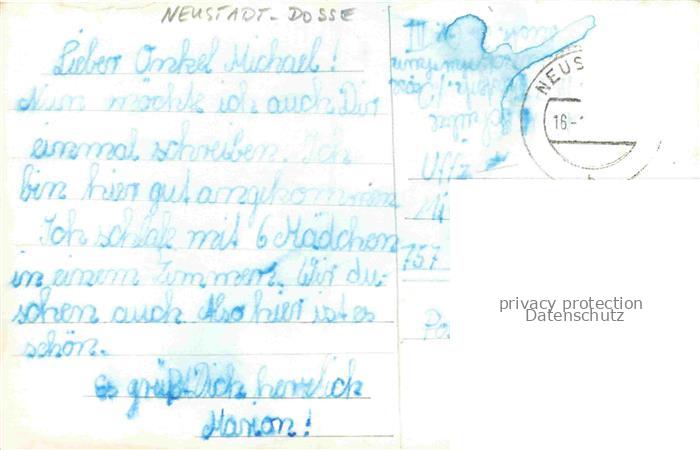 NEUSTADT-DOSSE
Lieber Onkel Michael!
Nun möchte ich auch Dir
einmal schreiben. Ich
bin hier gut angekommen
Ich schlafe mit 6 Mädchen
in einem Zimmer. Wir du-
schen auch Also hier ist es
schön.
Es grüßt Dich herzlich
Marion!
III
Uffz
757
NEUS
16.-
privacy protection
Datenschutz